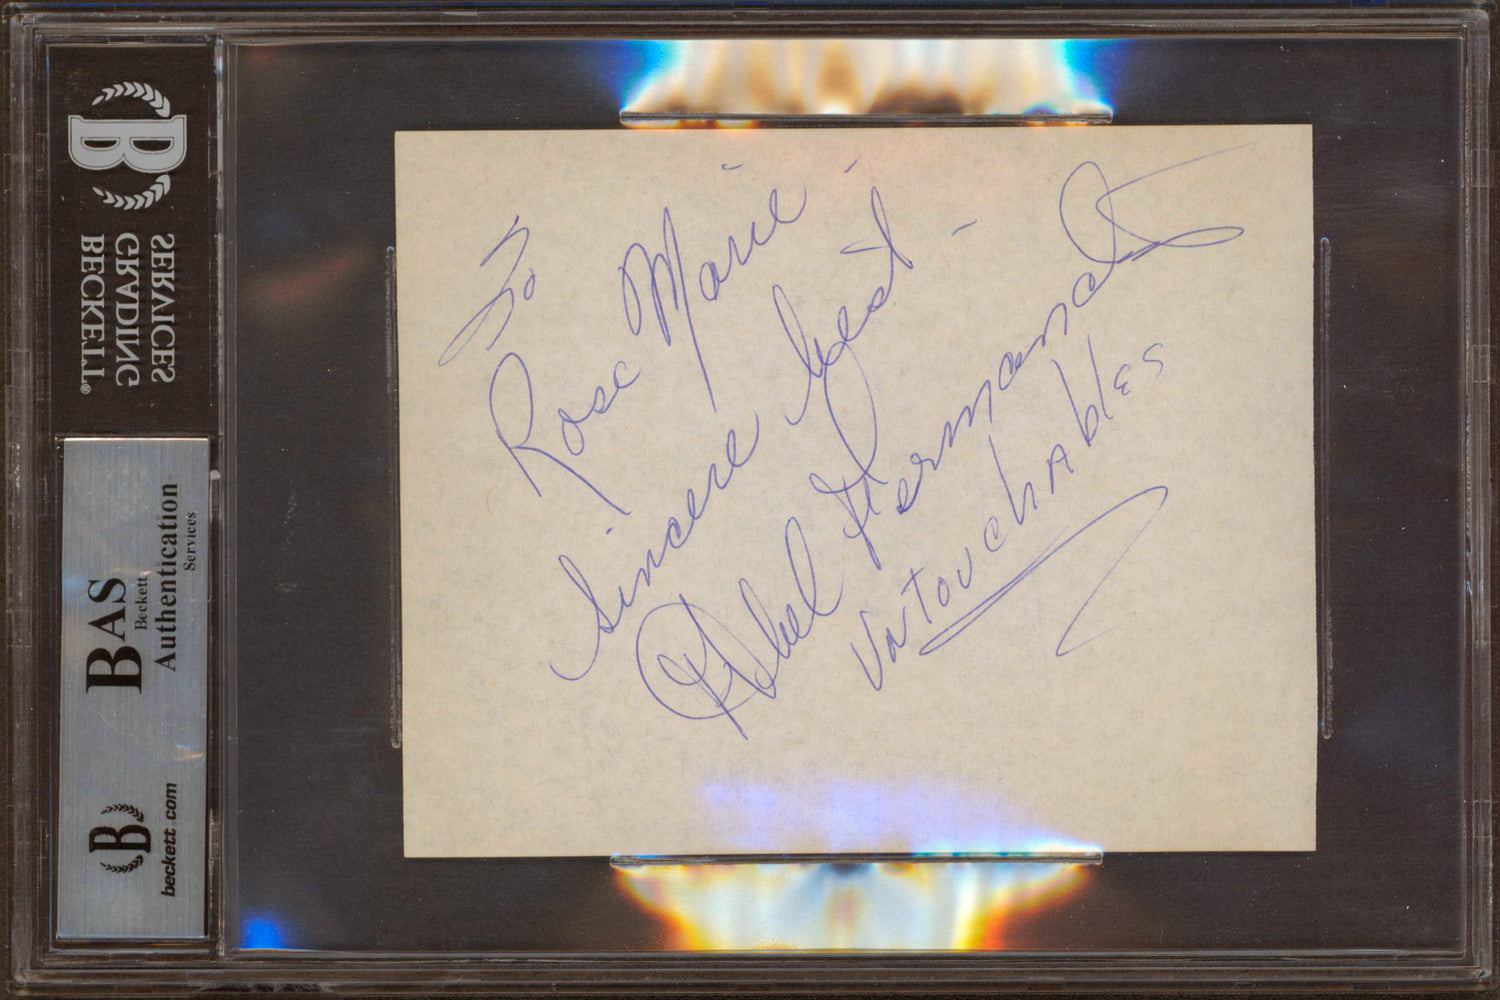 To
Rose Marie -
Sincere best -
Abel Fernandez
UNTOUChAblEs
BECKETT®
GRADING
SERVICES
B
BAS
Beckett
Authentication
Services
B
beckett.com